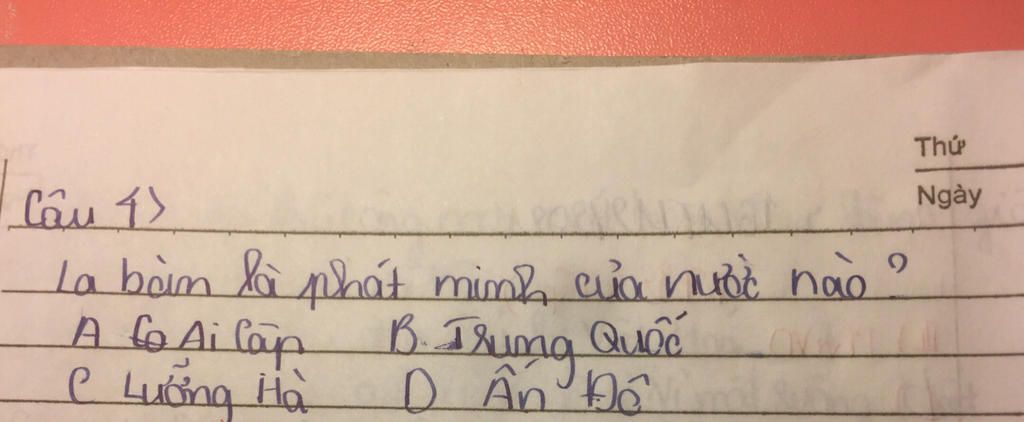 Thứ
Ngày
Câu 1>
La bàn là phát minh của nước nào?
A Ai Cập B. Trung Quốc
C Lưỡng Hà D Ấn Độ